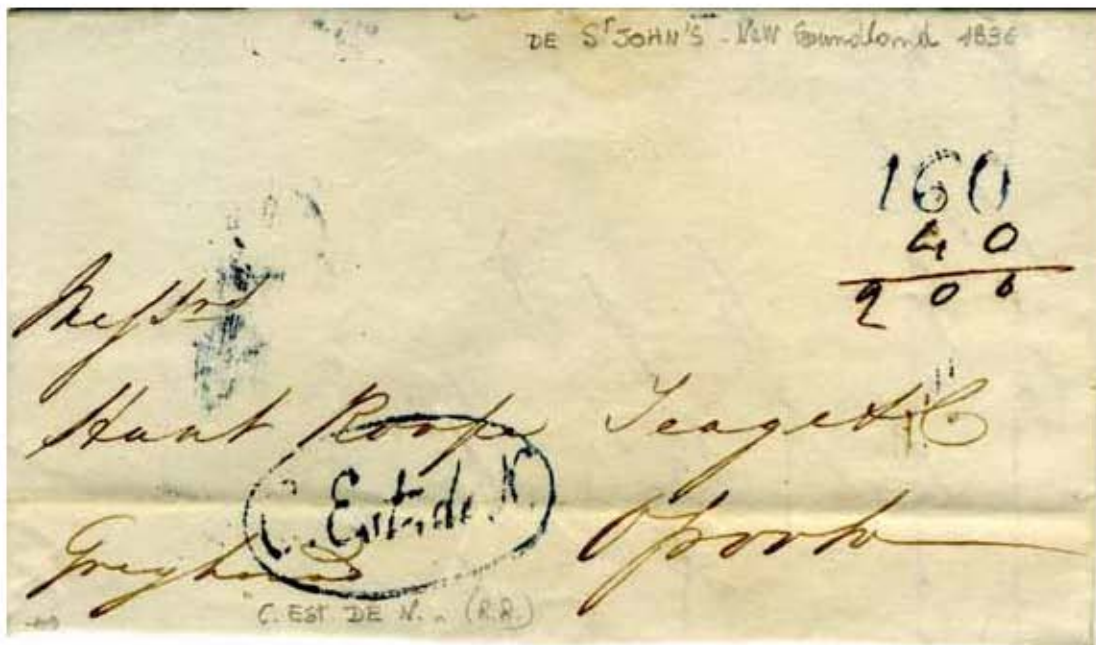 DE Sᵗ JOHN'S - New Foundland 1836
160
40
200
Messrs
Hunt Roope Teage & Cº
C. Est. de N.
Greyhound Oporto
C. EST DE N. (R.R.)